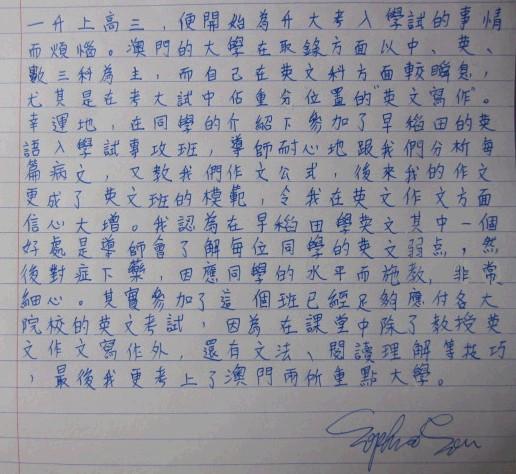 一升上高三，便開始為升大考入學試的事情
而煩惱。澳門的大學在取錄方面以中、英、
數三科為主，而自己在英文科方面較瞬息，
尤其是在考大試中佔重分位置的"英文寫作"。
幸運地，在同學的介紹下參加了早稻田的英
語入學試專攻班，導師耐心地跟我們分析每
篇病文，又教我們作文公式，後來我的作文
更成了英文班的模範，令我在英文作文方面
信心大增。我認為在早稻田學英文其中一個
好處是導師會了解每位同學的英文弱點，然
後對症下藥，因應同學的水平而施教，非常
細心。其實參加了這個班已經足夠應付各大
院校的英文考試，因為在課堂中除了教授英
文作文寫作外，還有文法、閱讀理解等技巧
，最後我更考上了澳門兩所重點大學。
Sophia Sou